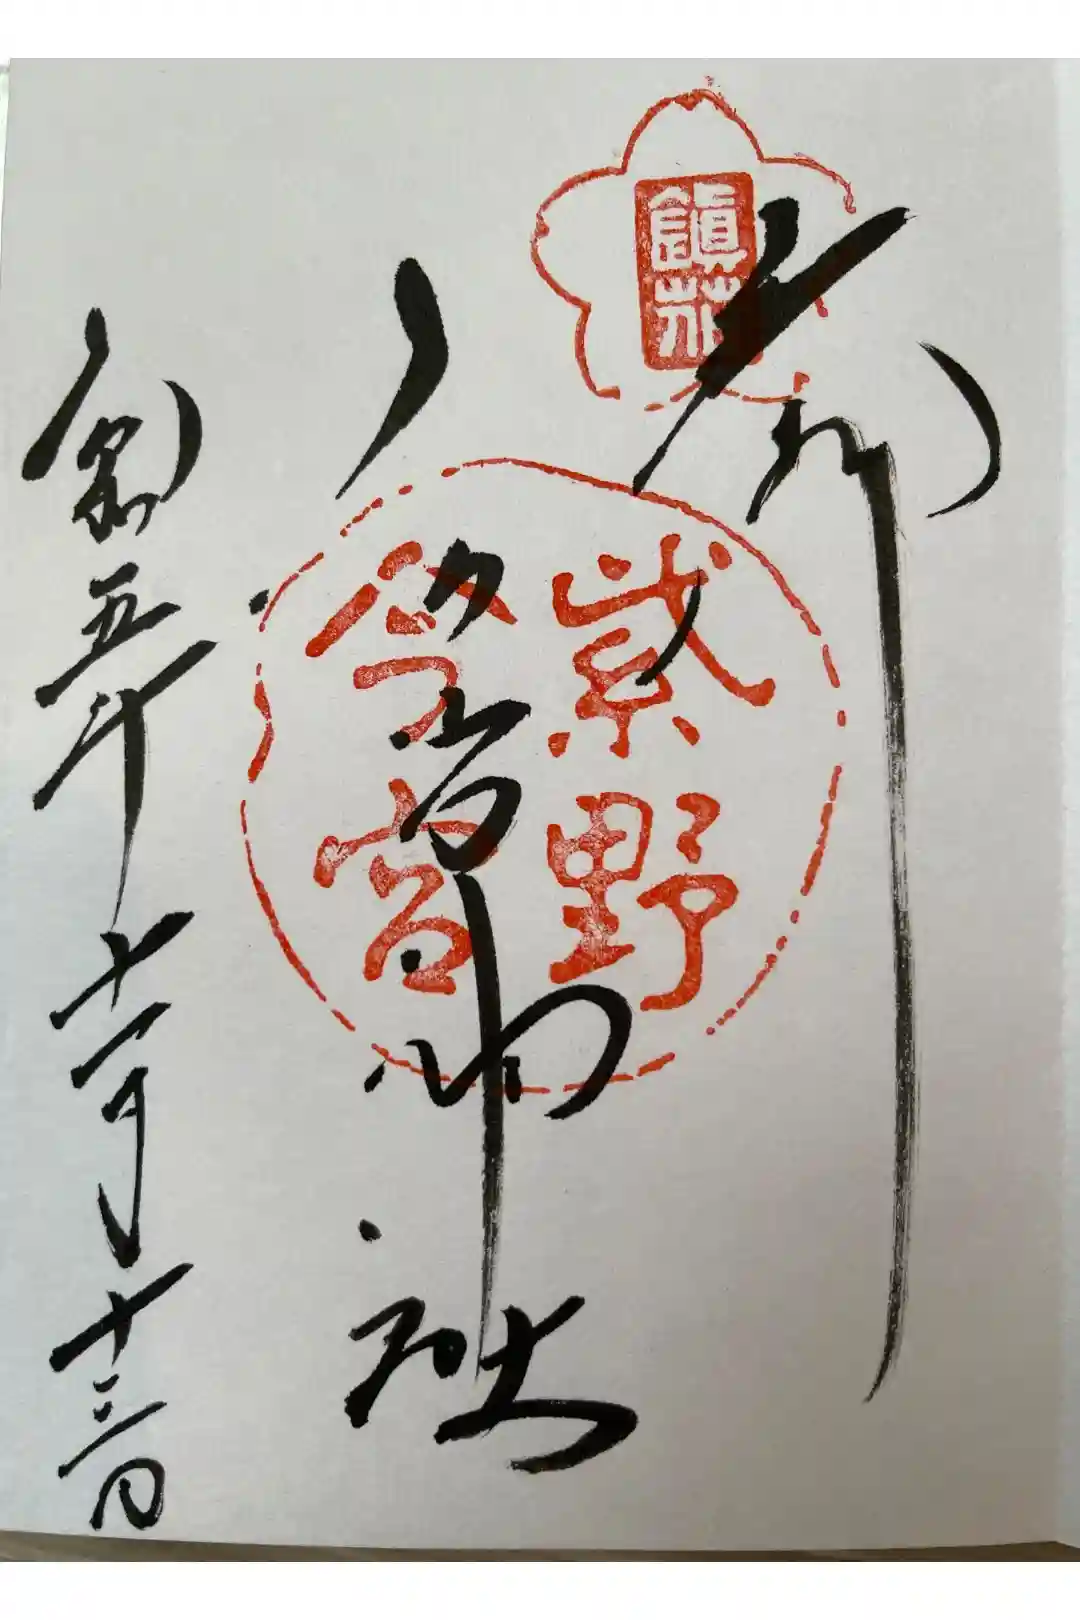 奉拝
鎮花
紫野
今宮
今宮神社
令和五年十一月十三日